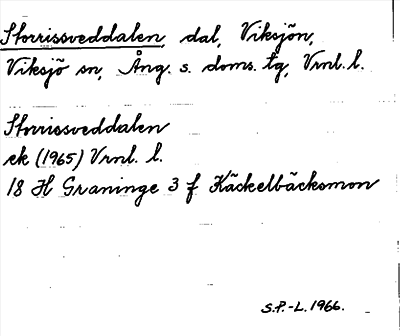 Storrissveddalen, dal, Viksjön,
Viksjö sn, Ång. s. doms. tg, Vrnl. l.
Storrissveddalen
ek (1965) Vrnl. l.
18 H Graninge 3 f Käckelbäcksmon
S.P.-L. 1966.